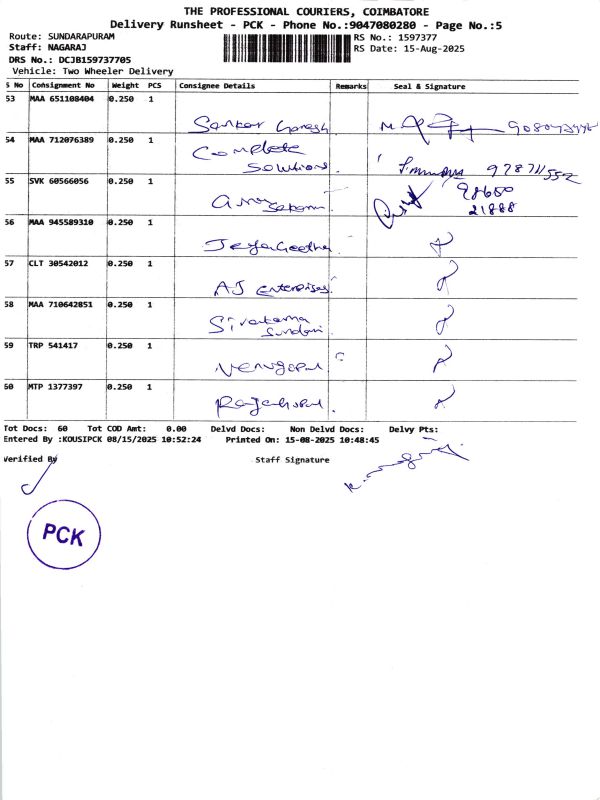 THE PROFESSIONAL COURIERS, COIMBATORE
Delivery Runsheet - PCK - Phone No.:9047080280 - Page No.:5
Route: SUNDARAPURAM
RS No.: 1597377
Staff: NAGARAJ
RS Date: 15-Aug-2025
DRS No.: DCJB159737705
Vehicle: Two Wheeler Delivery
S No Consignment No Weight PCS Consignee Details Remarks Seal & Signature
53 MAA 651108404 0.250 1
Sankar Ganesh
54 MAA 712076389 0.250 1
Complete
Solutions.
55 SVK 60566056 0.250 1
98650
21888
56 MAA 945589310 0.250 1
JeyaGeetha
57 CLT 30542012 0.250 1
AJ Enterprises
58 MAA 710642851 0.250 1
Sivakama
Sundari
59 TRP 541417 0.250 1
Venugopal
60 MTP 1377397 0.250 1
Rajagopal.
Tot Docs: 60 Tot COD Amt: 0.00 Delvd Docs: Non Delvd Docs: Delvy Pts:
Entered By :KOUSIPCK 08/15/2025 10:52:24 Printed On: 15-08-2025 10:48:45
Verified By Staff Signature
PCK